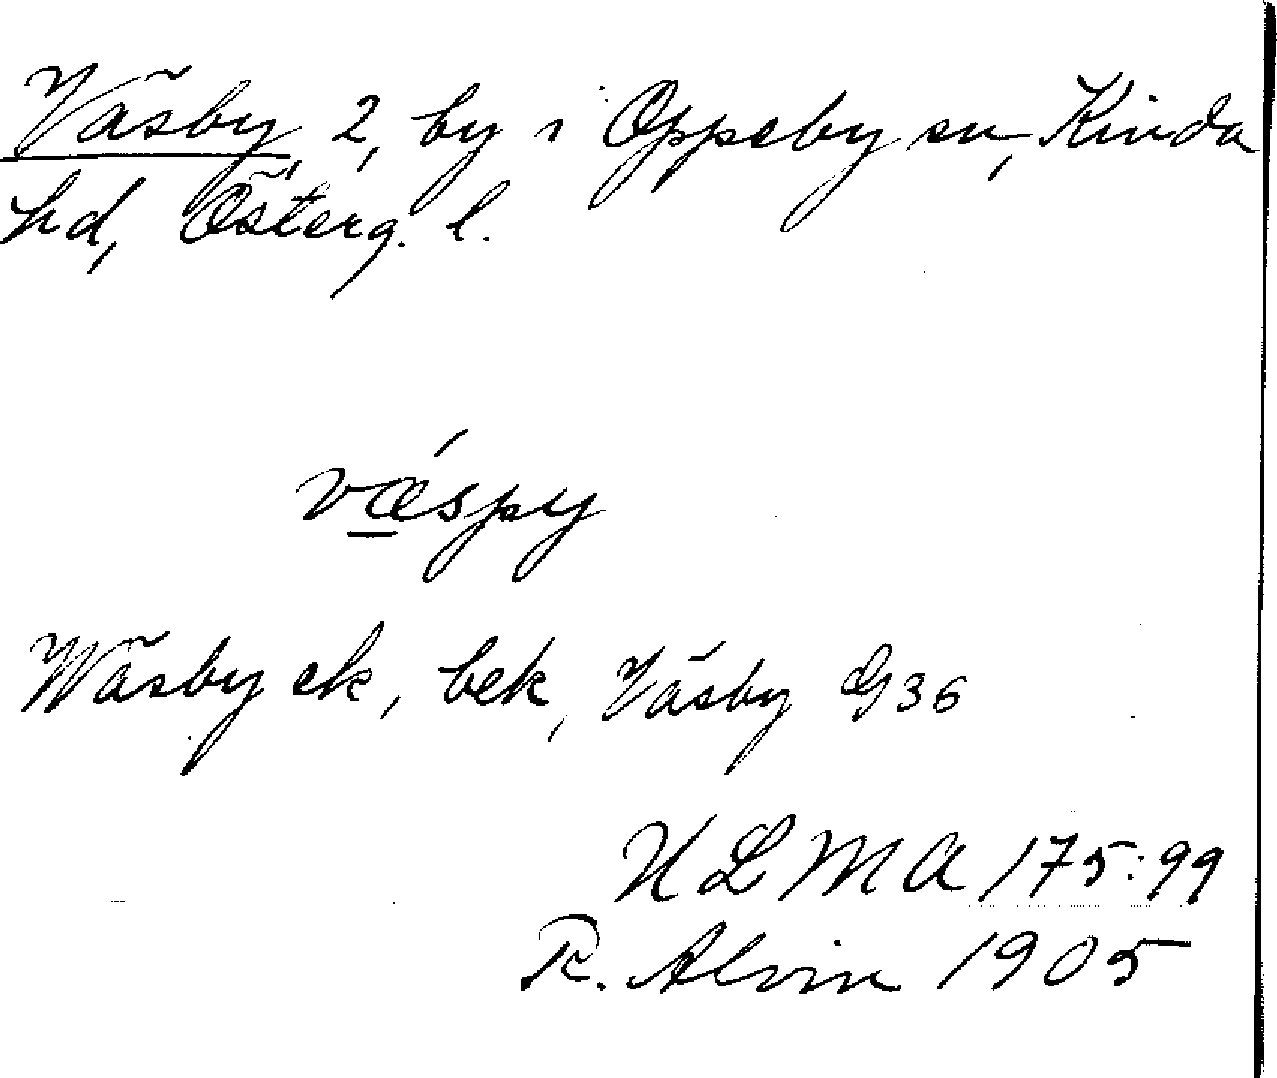 Väsby, 2, by i Oppeby sn, Kinda
hd, Österg. l.
vǽspy
Wäsby ek, bek, Väsby G 36
ULMA 175:99
R. Alvin 1905